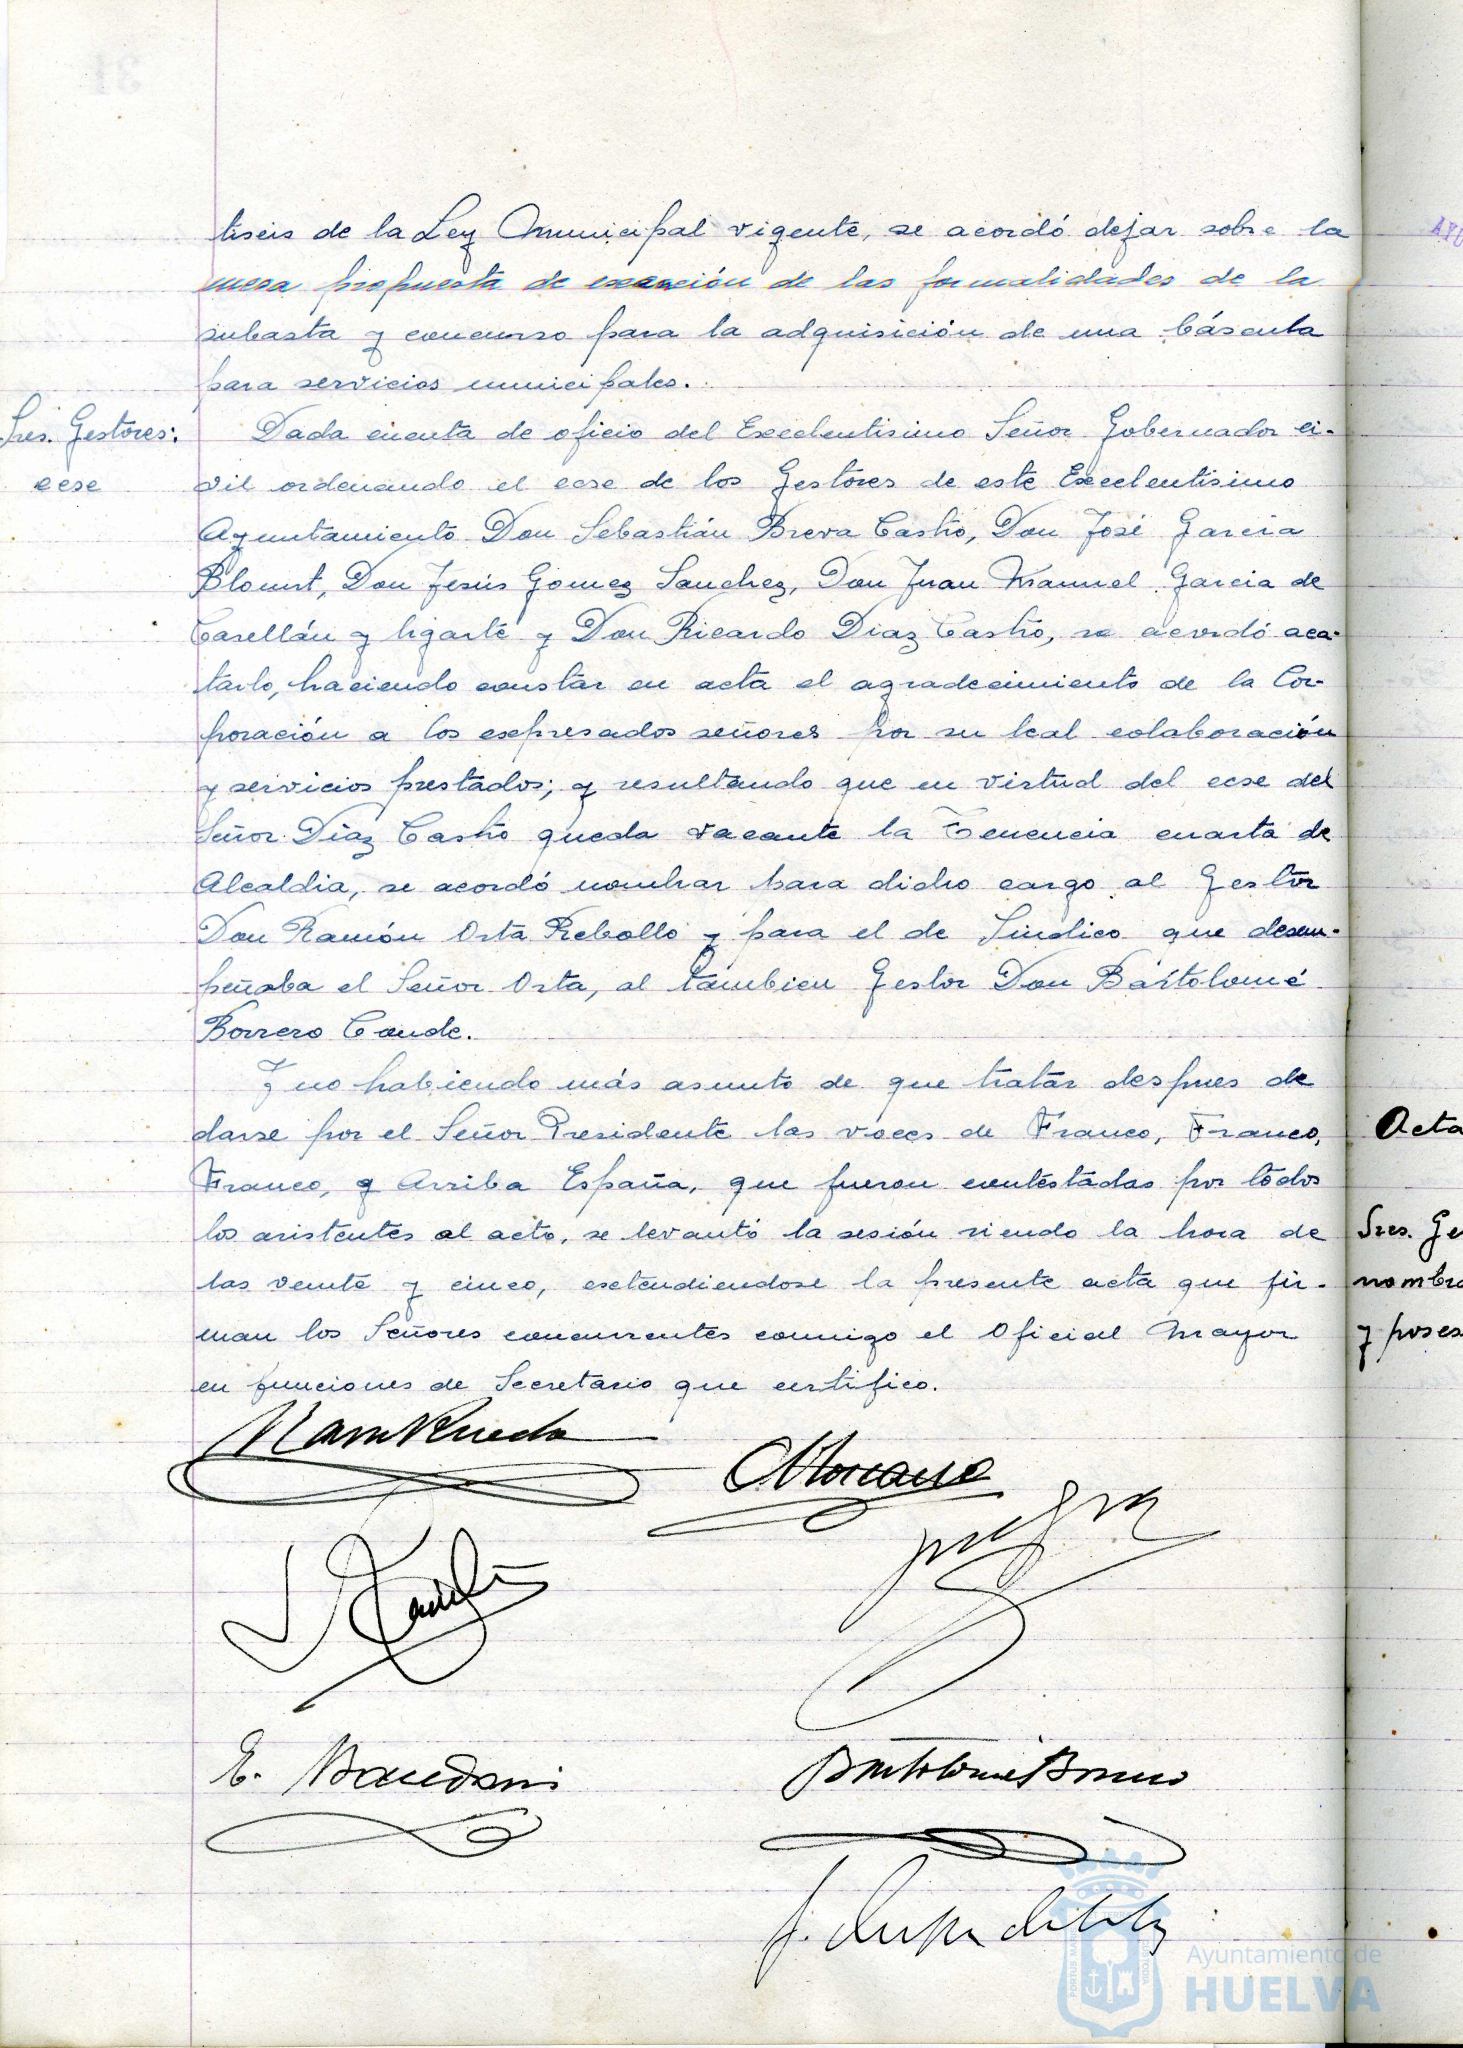 tiseis de la Ley Municipal vigente, se acordó dejar sobre la
mesa propuesta de exención de las formalidades de la
subasta y concurso para la adquisición de una báscula
para servicios municipales.
Sres. Gestores:
cese
Dada cuenta de oficio del Excelentisimo Señor Gobernador ci-
vil ordenando el cese de los Gestores de este Excelentisimo
Ayuntamiento Don Sebastián Breva Castro, Don José Garcia
Blount, Don Jesús Gomez Sanchez, Don Juan Manuel Garcia de
Casellán y Ugarte y Don Ricardo Diaz Castro, se acordó aca-
tarlo, haciendo constar en acta el agradecimiento de la Cor-
poración a los expresados señores por su leal colaboración
y servicios prestados; y resultando que en virtud del cese del
Señor Diaz Castro queda vacante la Tenencia cuarta de
Alcaldia, se acordó nombrar para dicho cargo al Gestor
Don Ramón Orta Rebollo y para el de Sindico que desem-
peñaba el Señor Orta, al tambien Gestor Don Bartolomé
Borrero Conde.
Y no habiendo más asunto de que tratar despues de
darse por el Señor Presidente las voces de Franco, Franco,
Franco, y Arriba España, que fueron contestadas por todos
los asistentes al acto, se levantó la sesión siendo la hora de
las veinte y cinco, extendiendose la presente acta que fir-
man los Señores concurrentes conmigo el Oficial Mayor
en funciones de Secretario que certifico.
Acta
Sres. Ge
nombra
y poses
E.
Bartolomé Borrero
Ayuntamiento de
HUELVA